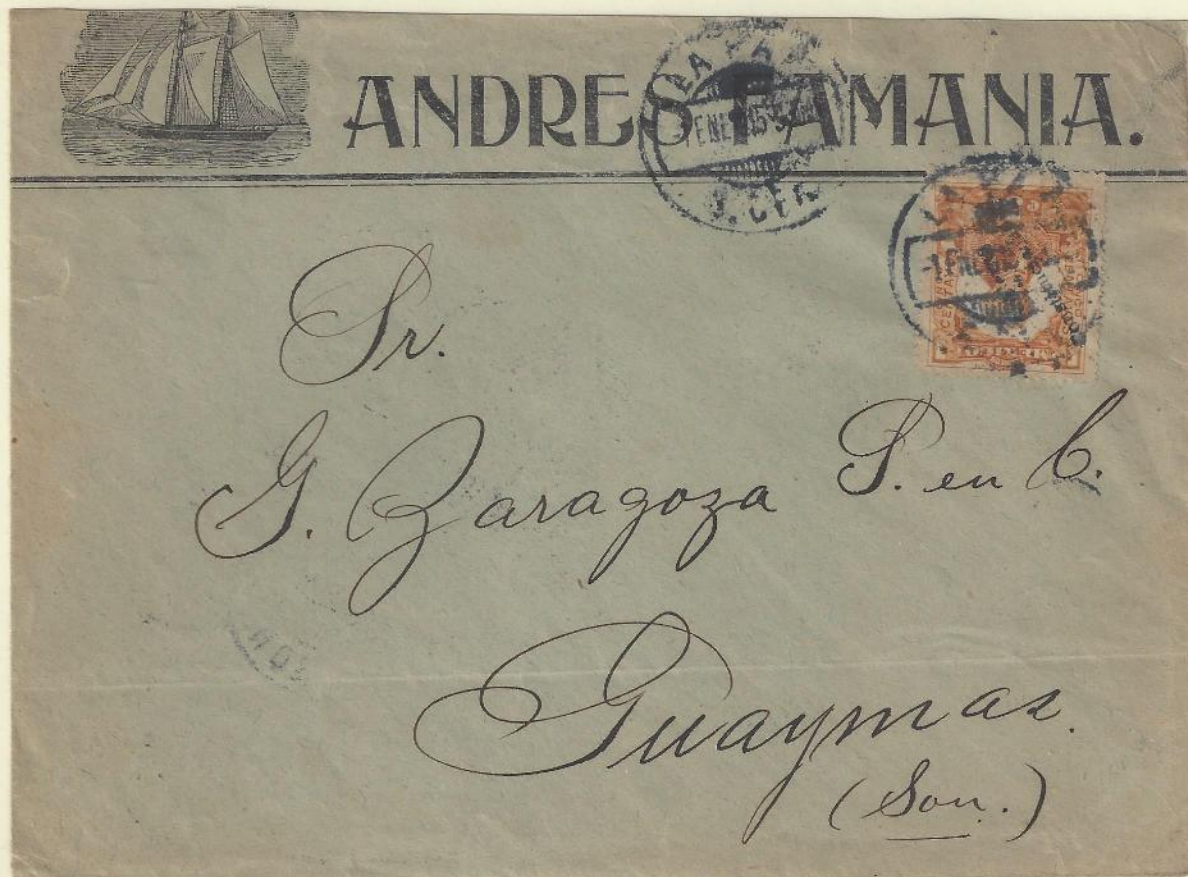 ANDRES TAMANIA.
LA PAZ
ENE
B. CFA.
Sr.
G. Zaragoza S. en C.
Guaymas.
(Son.)